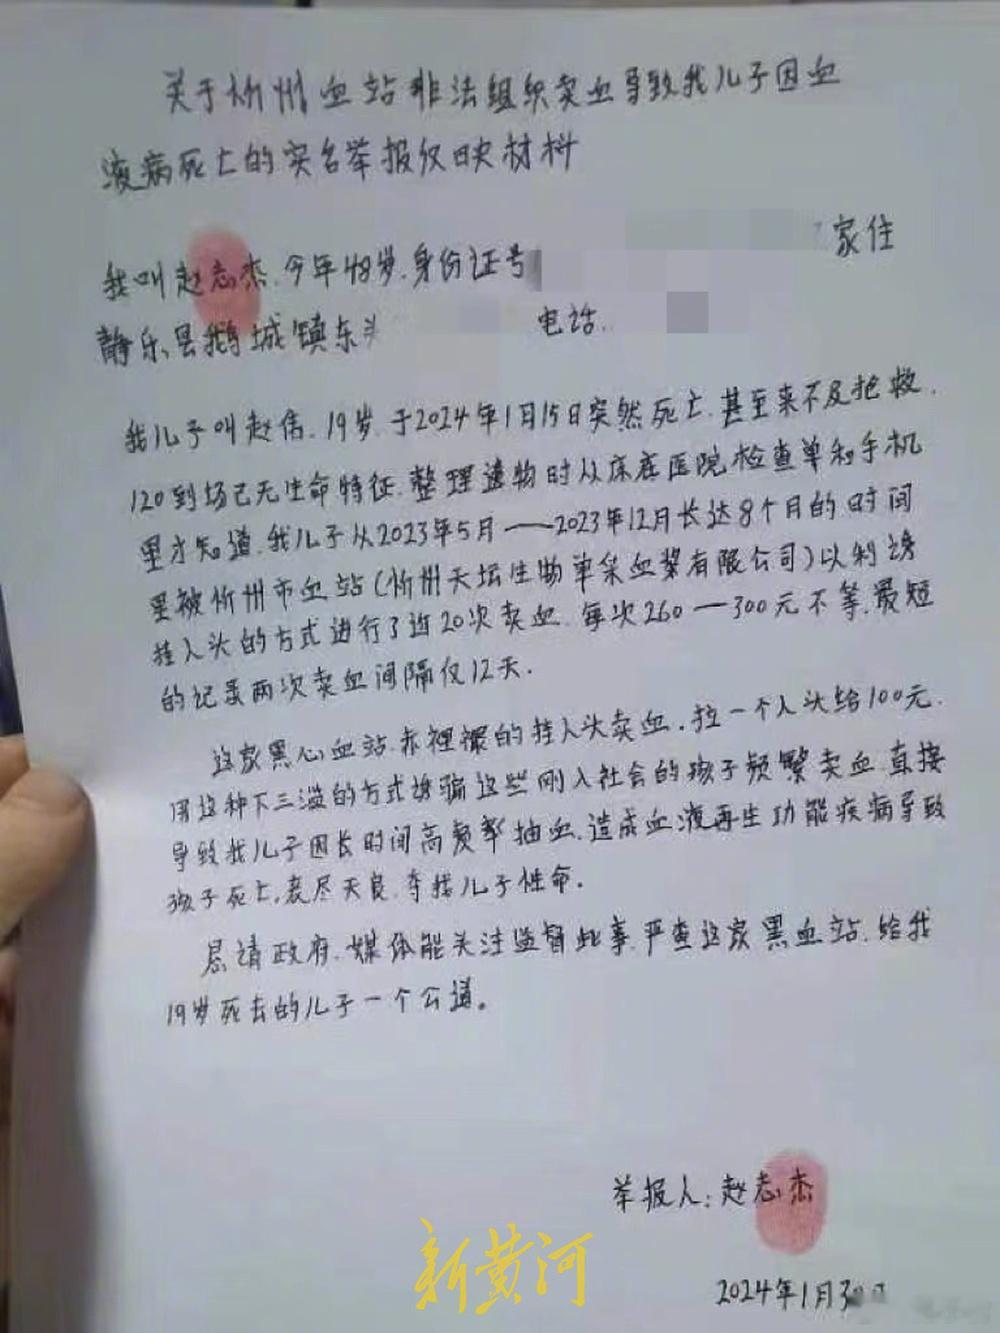 关于忻州血站非法组织卖血导致我儿子因血
液病死亡的实名举报反映材料
家住
我叫赵志杰.今年48岁.身份证号
静乐县鹅城镇东头
电话.
我儿子叫赵伟.19岁.于2024年1月15日突然死亡.甚至来不及抢救.
120到场已无生命特征.整理遗物时从床底医院检查单和手机
里才知道.我儿子从2023年5月——2023年12月长达8个月的时间
里被忻州市血站(忻州天坛生物单采血浆有限公司)以利诱
挂人头的方式进行了近20次卖血.每次260—300元不等.最短
的记录两次卖血间隔仅12天.
这家黑心血站.赤裸裸的挂人头卖血.拉一个人头给100元.
用这种下三滥的方式诱骗这些刚入社会的孩子频繁卖血.直接
导致我儿子因长时间高频率抽血.造成血液再生功能疾病导致
孩子死亡,丧尽天良.夺我儿子性命.
恳请政府.媒体能关注监督此事.严查这家黑血站.给我
19岁死去的儿子一个公道。
举报人:赵志杰
新黄河
2024年1月30